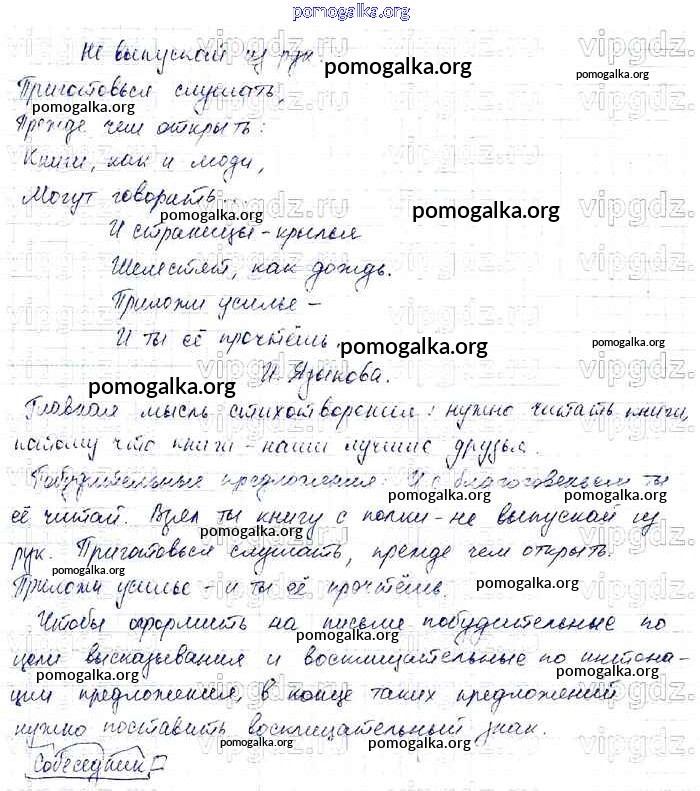 pomogalka.org
Не выпускай из рук.
Приготовься слушать,
Прежде чем открыть:
Книги, как и люди,
Могут говорить...
И страницы-крылья
Шелестят, как дождь.
Приложи усилье -
И ты её прочтёшь.
И. Языкова.
Главная мысль стихотворения: нужно читать книги,
потому что книги - наши лучшие друзья.
Побудительные предложения: И с благоговеньем ты
её читай. Взял ты книгу с полки - не выпускай из
рук. Приготовься слушать, прежде чем открыть.
Приложи усилье - и ты её прочтёшь.
Чтобы оформить на письме побудительные по
цели высказывания и восклицательные по интона-
ции предложения, в конце таких предложений
нужно поставить восклицательный знак.
Собеседник